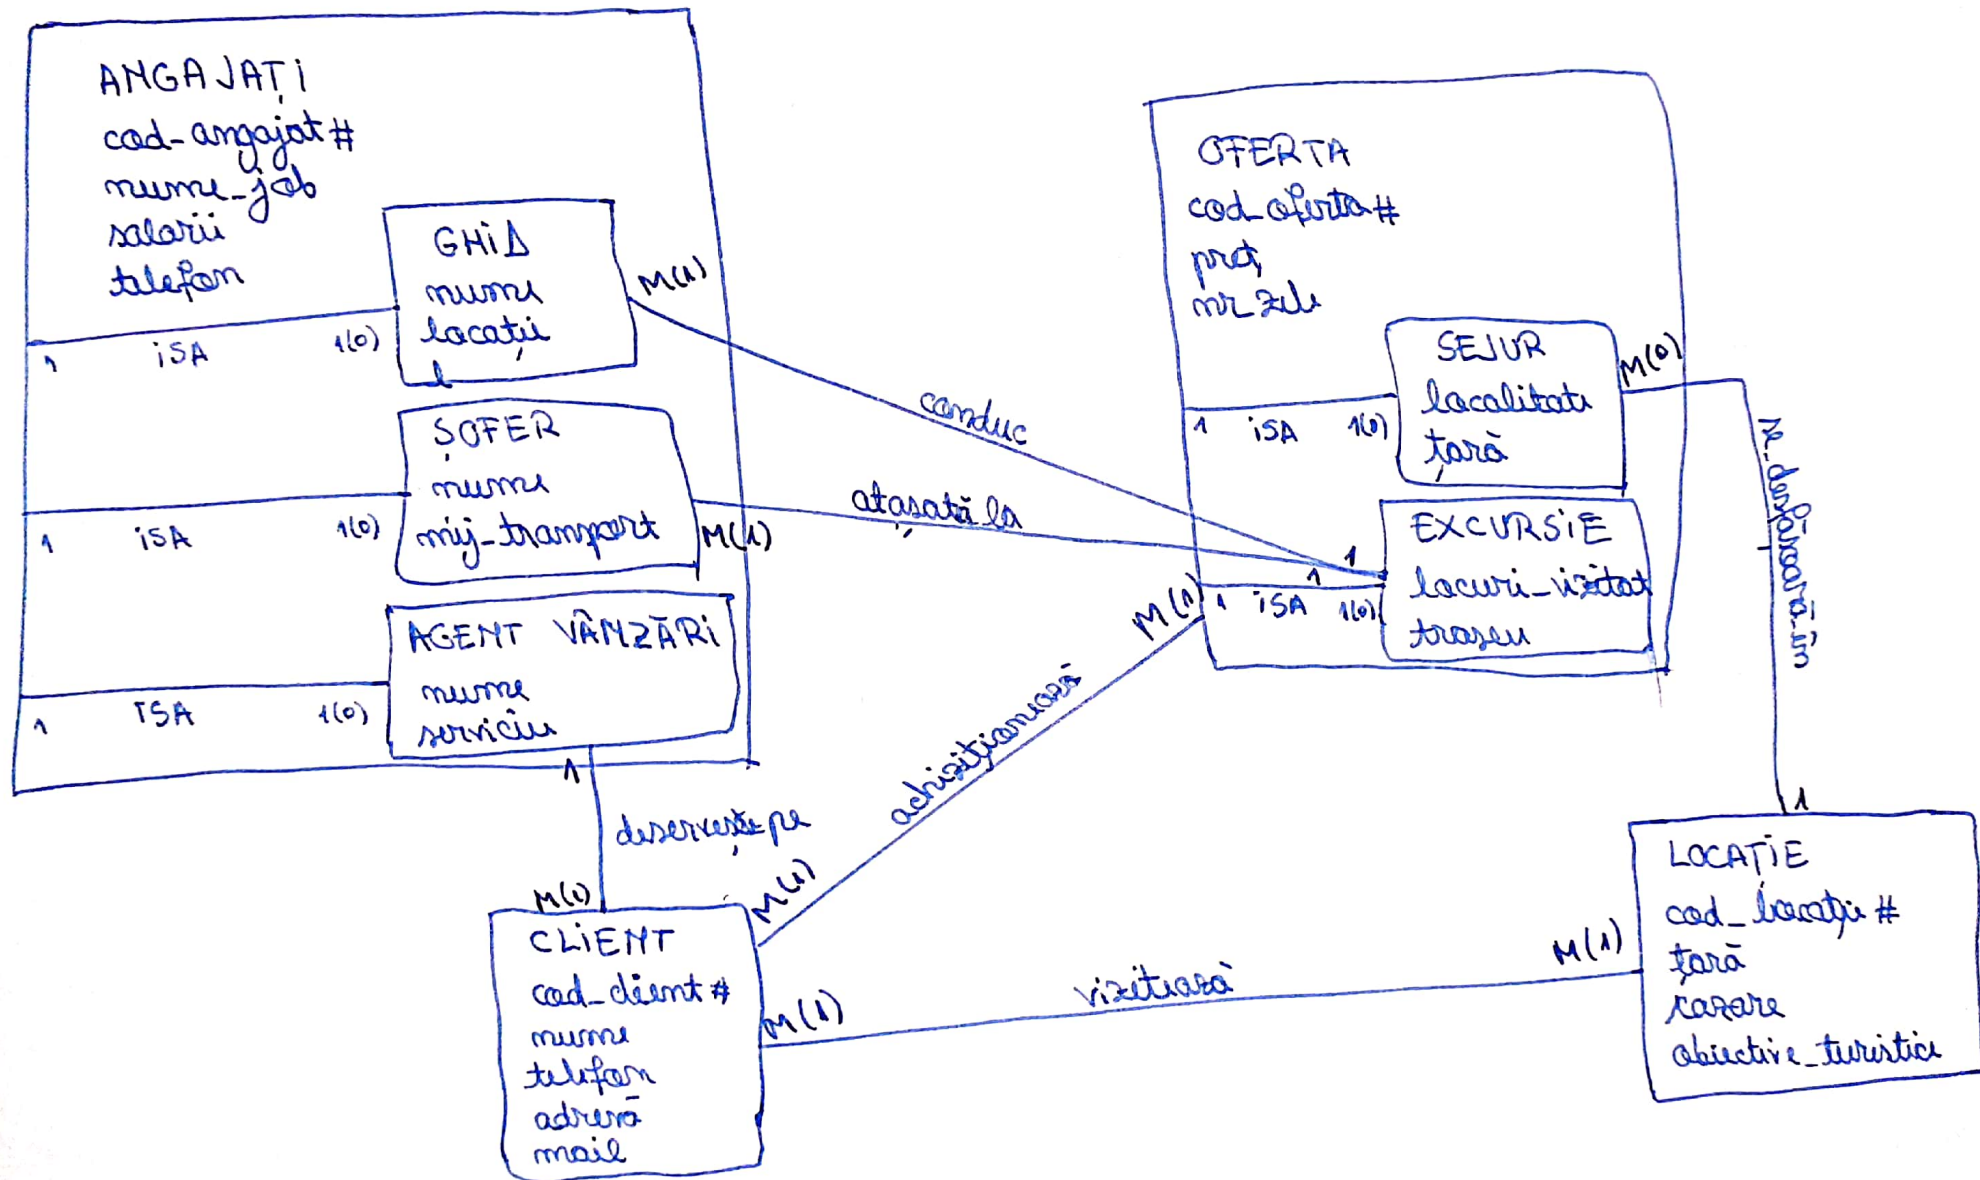 ANGAJAȚI
cod_angajat #
nume_job
salarii
telefon
GHID
nume
locații
M(1)
1 ISA 1(0)
ȘOFER
nume
mij_transport
M(1)
1 ISA 1(0)
AGENT VÂNZĂRI
nume
serviciu
1 ISA 1(0)
1
deservește pe
M(1)
conduc
1
atașată la
1
OFERTA
cod_oferta #
preț
nr_zile
SEJUR
localitate
țară
M(0)
1 ISA 1(0)
EXCURSIE
locuri_vizitat
traseu
1 ISA 1(0)
M(1)
achiziționează
M(1)
se_desfășoară_în
1
CLIENT
cod_client #
nume
telefon
adresă
mail
M(1)
vizitează
M(1)
LOCAȚIE
cod_locație #
țară
cazare
obiective_turistice